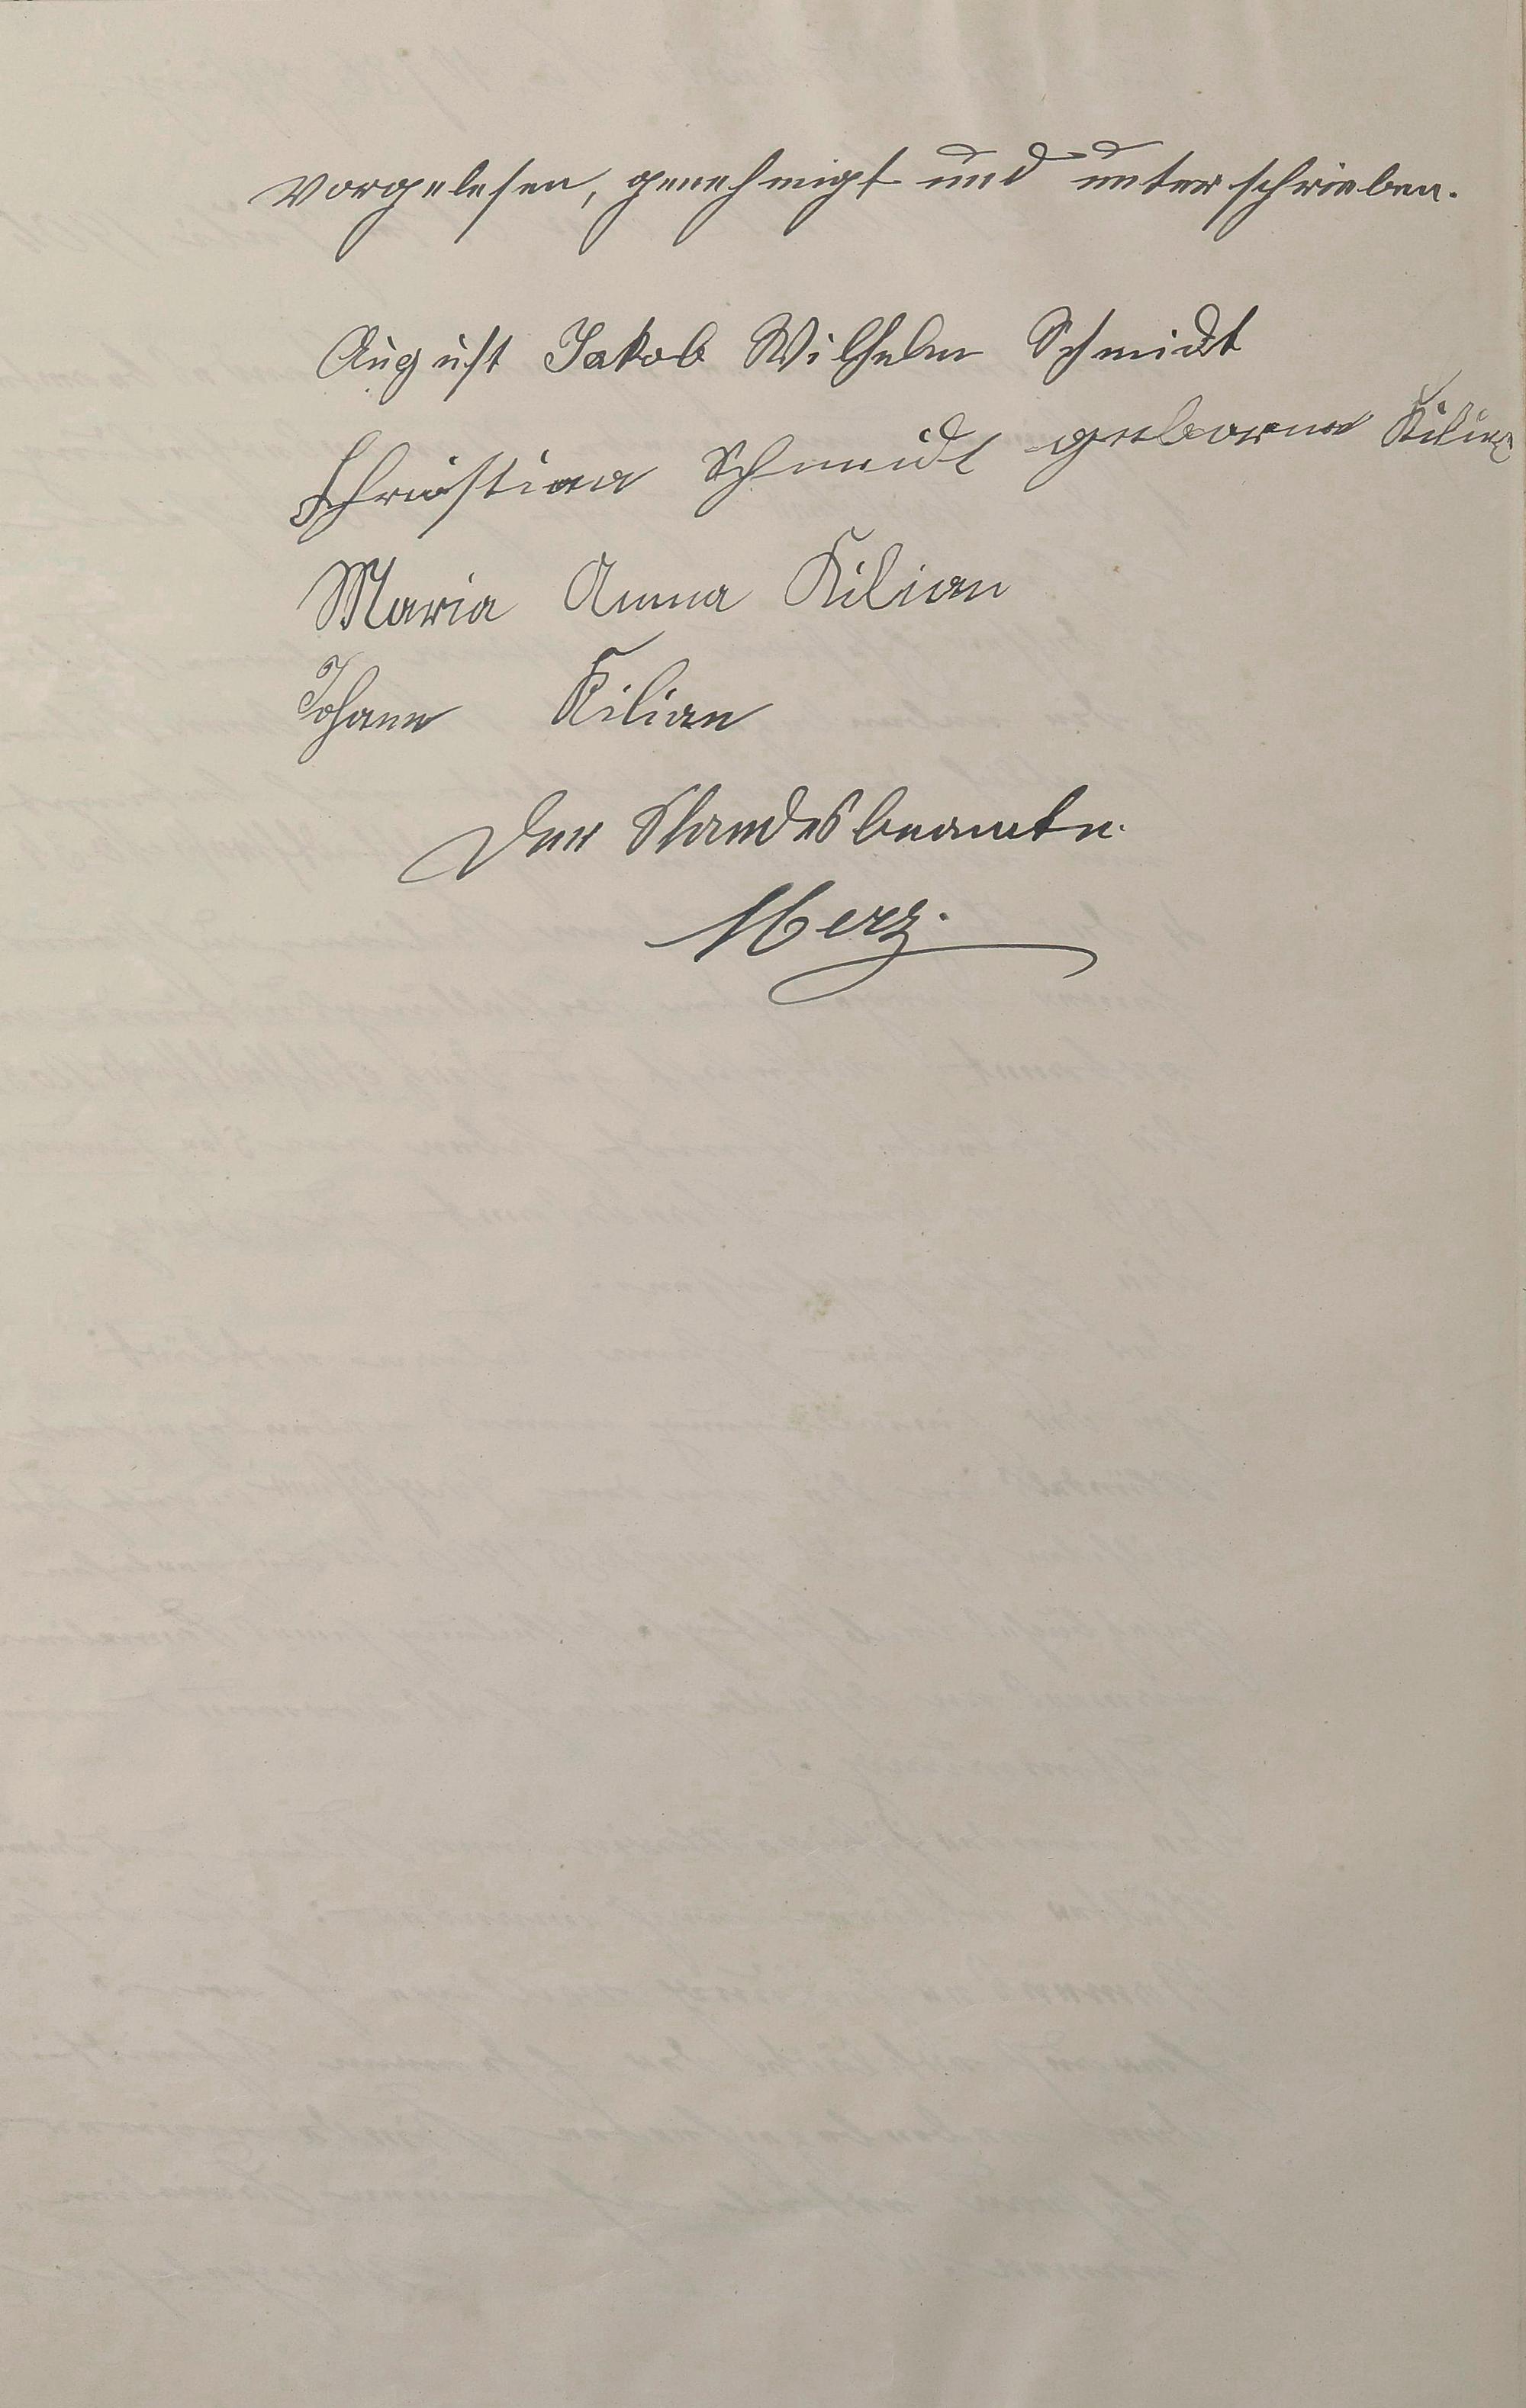 vorgelesen, genehmigt und unterschrieben.
August Jakob Wilhelm Schmidt
Christina Schmidt geborne Kilian
Maria Anna Kilian
Johann Kilian
Der Standesbeamte.
Merz.